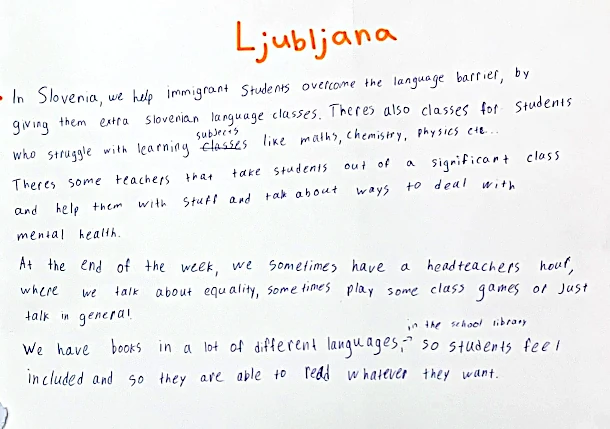 Ljubljana
• In Slovenia, we help immigrant students overcome the language barrier, by
giving them extra slovenian language classes. Theres also classes for students
subjects
who struggle with learning classes like maths, chemistry, physics etc...
Theres some teachers that take students out of a significant class
and help them with stuff and talk about ways to deal with
mental health.
At the end of the week, we sometimes have a headteachers hour,
where we talk about equality, sometimes play some class games or just
talk in general
in the school library
We have books in a lot of different languages, so students feel
included and so they are able to read whatever they want.